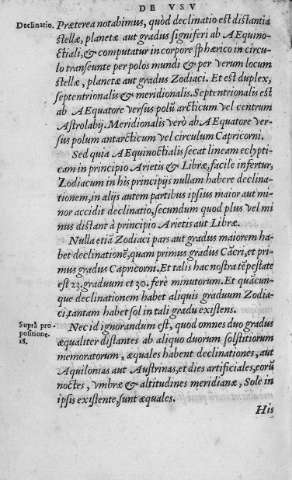 DE VSV
Declinatio.
Præterea notabimus, quòd declinatio est distantia
stellæ, planetæ aut gradus signiferi ab AEquino-
ctiali, & computatur in corpore sphærico in circu
lo transeunte per polos mundi & per verum locum
stellæ, planetæ aut gradus Zodiaci. Et est duplex,
septentrionalis & meridionalis. Septentrionalis est
ab AEquatore versus polū arcticum vel centrum
Astrolabij. Meridionalis verò ab AEquatore ver-
sus polum antarcticum vel circulum Capricorni.
Sed quia AEquinoctialis secat lineam eclypti-
cam in principio Arietis & Libræ, facile infertur,
Zodiacum in his principijs nullam habere declina-
tionem, in alijs autem partibus ipsius maior aut mi
nor accidit declinatio, secundum quod plus vel mi
nus distant à principio Arietis aut Libræ.
Nulla etiā Zodiaci pars aut gradus maiorem ha-
bet declinationē, quam primus gradus Cācri, et pri
mus gradus Capricorni. Et talis hac nostra tēpestate
est 23. graduum et 30. ferè minutorum. Et quācun-
que declinationem habet aliquis graduum Zodia-
ci, tantam habet sol in tali gradu existens.
Suprà pro-
positione.
18.
Nec id ignorandum est, quòd omnes duo gradus
æqualiter distantes ab aliquo duorum solstitiorum
memoratorum, æquales habent declinationes, aut
Aquilonias aut Austrinas, et dies artificiales, eorū
noctes, vmbræ & altitudines meridianæ, Sole in
ipsis existente, sunt æquales.
His